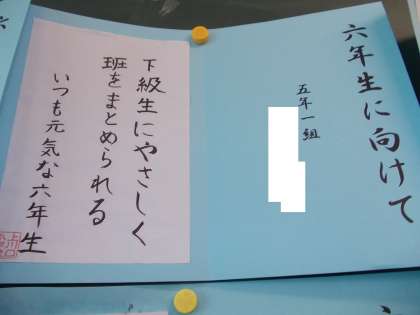 六年生に向けて
五年一組
下級生にやさしく
班をまとめられる
いつも元気な六年生